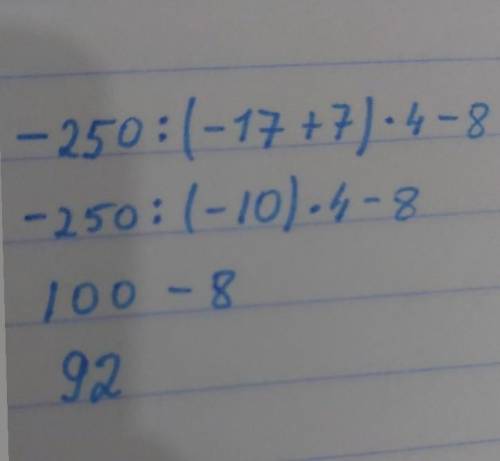 -250:(-17+7)·4-8
-250:(-10)·4-8
100-8
92